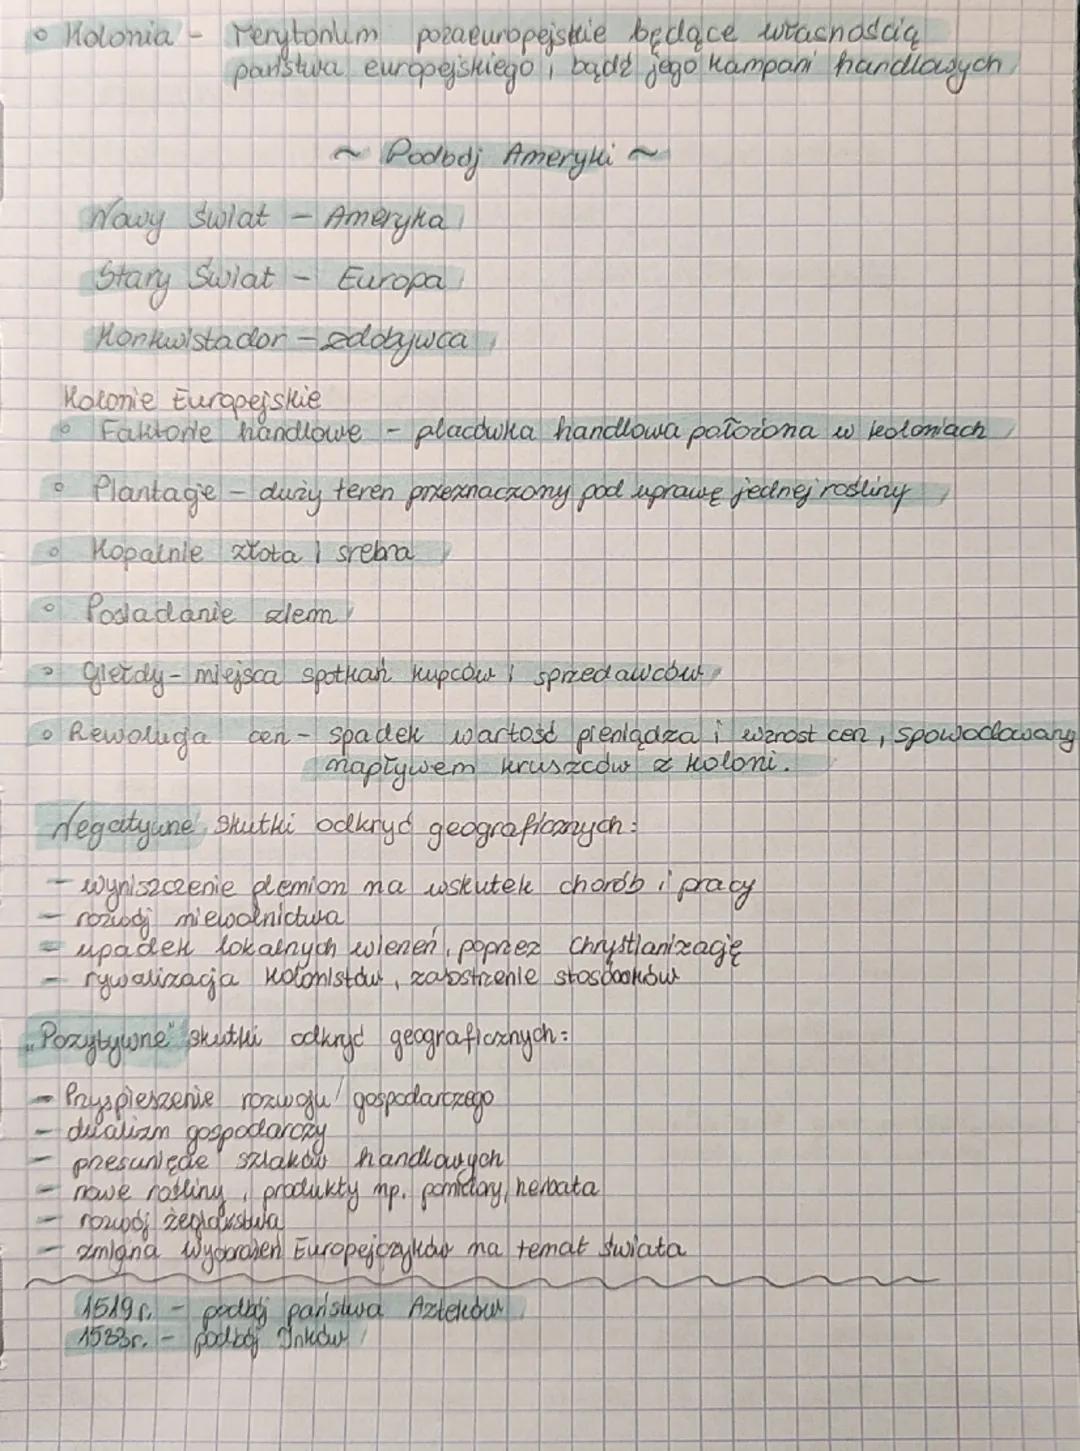 Kolonia - Terytorium pozaeuropejskie będące własnością
państwa europejskiego, bądź jego kampani handlowych
~ Podbój Ameryki ~
Nowy Świat - Ameryka
Stary Świat - Europa
Konkwistador - zdobywca
Kolonie Europejskie
Faktorie handlowe - placówka handlowa położona w koloniach
Plantacje - duży teren przeznaczony pod uprawę jednej rośliny
Kopalnie złota i srebra
Posiadanie ziem
Giełdy - miejsca spotkań kupców i sprzedawców
Rewolucja cen - spadek wartość pieniądza i wzrost cen, spowodowany
napływem kruszców z koloni.
Negatywne skutki odkryć geograficznych:
- wyniszczenie plemion na wskutek chorób i pracy
- rozwój niewolnictwa
- upadek lokalnych wierzeń, poprzez Chrystianizację
- rywalizacja kolonistów, zaostrzenie stosunków
"Pozytywne" skutki odkryć geograficznych:
- Przyspieszenie rozwoju gospodarczego
- dualizm gospodarczy
- przesunięcie szlaków handlowych
- nowe rośliny, produkty np. pomidory, herbata
- rozwój żeglarstwa
- zmiana wyobrażeń Europejczyków na temat świata
1519 r. - podbój państwa Azteków
1533r. - podbój Inków